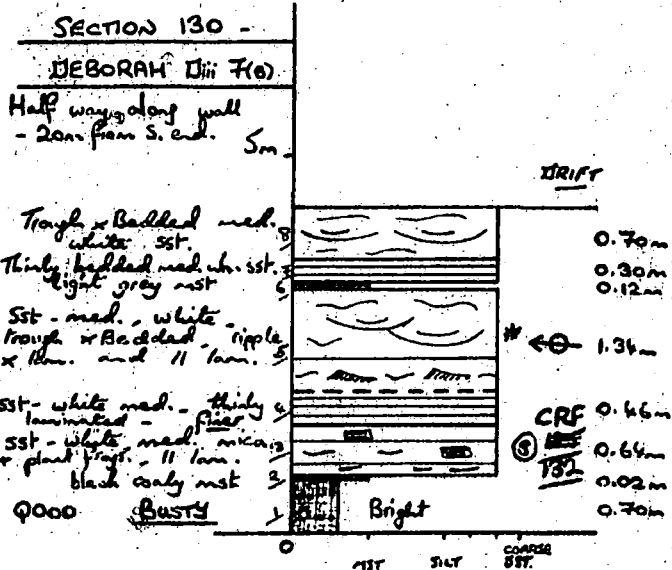 SECTION 130 -
DEBORAH Diii 7(B)
Half way along wall
- 20m from S. end.
5m
DRIFT
Trough x Bedded med.
white sst.
8
0.70m
Thinly bedded med. wh. sst.
7
0.30m
light grey mst
6
0.12m
Sst - med., white -
trough x Bedded, ripple
x lam. and 11 lam.
5
*
1.34m
sst - white med. - thinly
laminated - finer
4
CRF
0.46m
sst - white, med. mica.
+ plant frags., 11 lam.
3
S
132
0.64m
black coaly mst
2
0.02m
Q000 BUSTY
1
Bright
0.70m
0
MST SILT COARSE
SST.